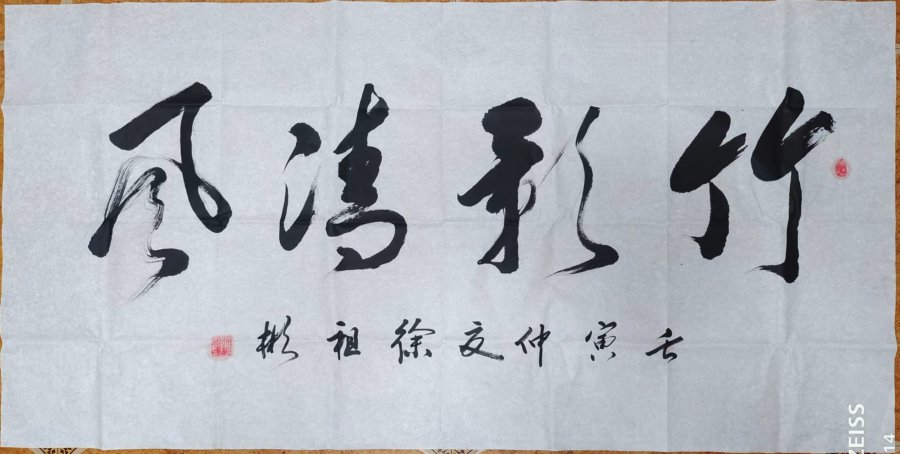 竹影清风
壬寅仲夏徐祖彬
ZEISS
14